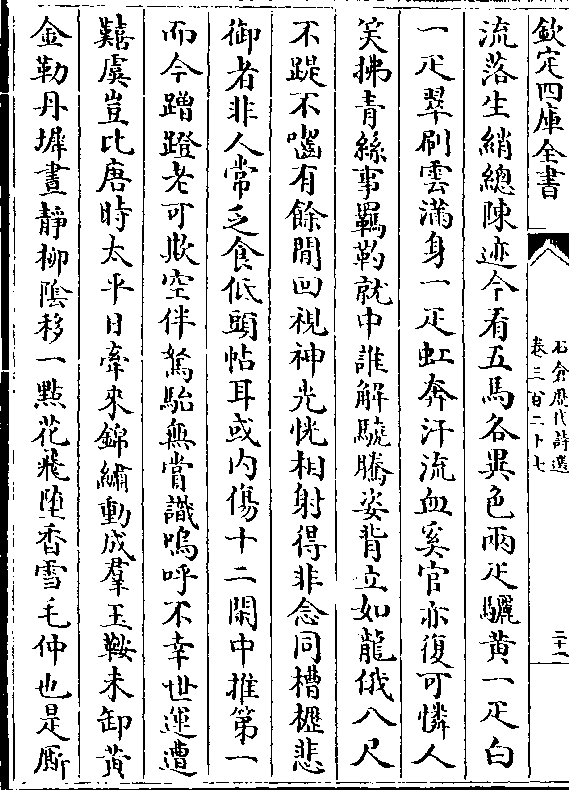 欽定四庫全書
石倉歷代詩選
卷三百二十七
二十一
流落生綃總陳迹今看五馬各異色兩疋驪黄一疋白
一疋翠刷雲滿身一疋虹奔汗流血奚官亦復可憐人
笑拂青絲事羈靮就中誰解驍騰姿背立如龍俄八尺
不踶不齧有餘閒回視神光恍相射得非念同槽櫪悲
御者非人常乏食低頭帖耳或内傷十二閑中推第一
而今蹭蹬老可欺空伴駑駘無嘗識嗚呼不幸世運遭
囏虞豈比唐時太平日牽來錦繡動成羣玉鞍未卸黄
金勒丹墀晝靜柳陰移一點花飛墮香雪毛仲也是厮